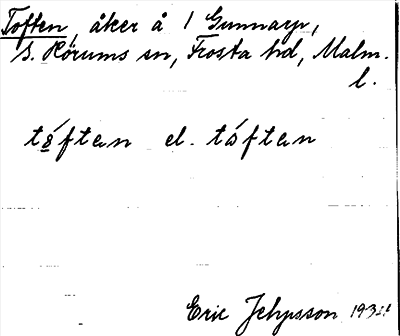 Toften, åker å 1 Gunnarp,
S. Hörums sn, Frosta hd, Malm.
l.
tǫ́ften el. tåften
Eric